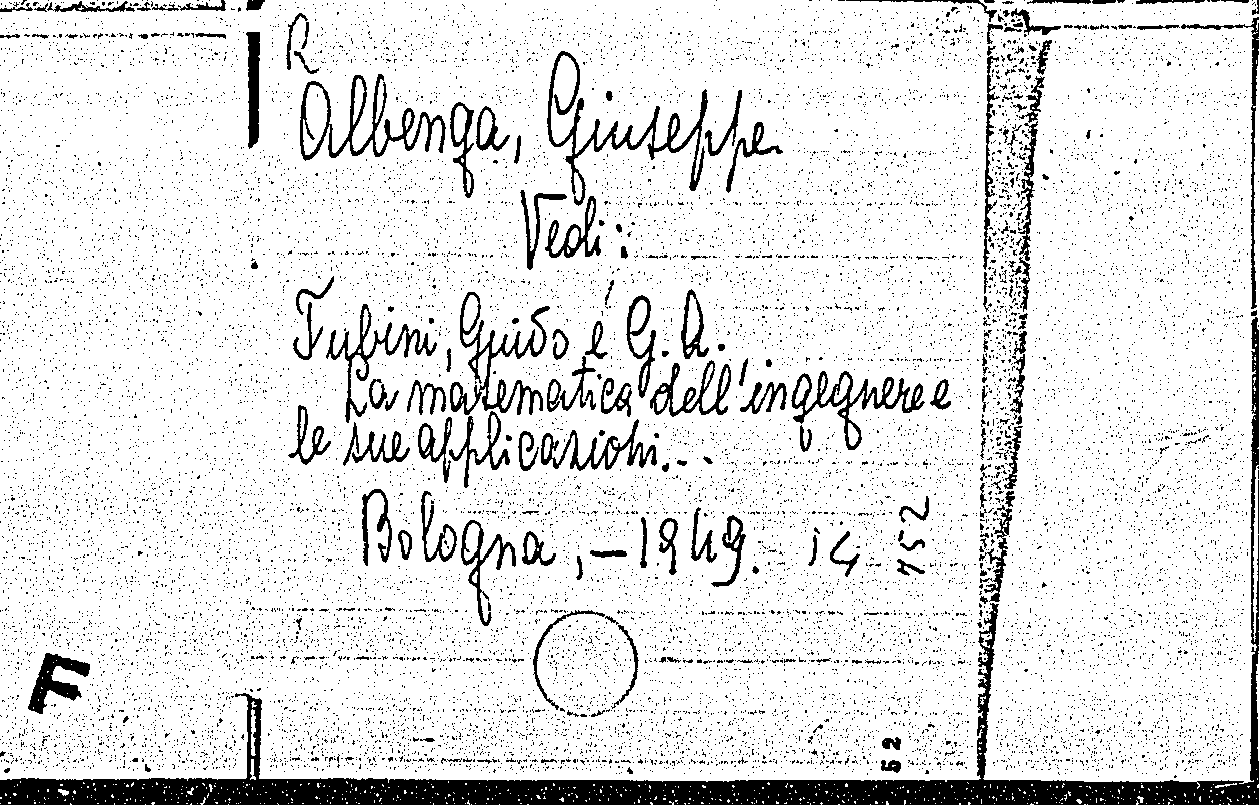 R
Albenga, Giuseppe
Vedi:
Fubini, Guido, é G. A.
La matematica dell'ingegnere e
le sue applicazioni...
Bologna, - 1949. i4
752
52
F